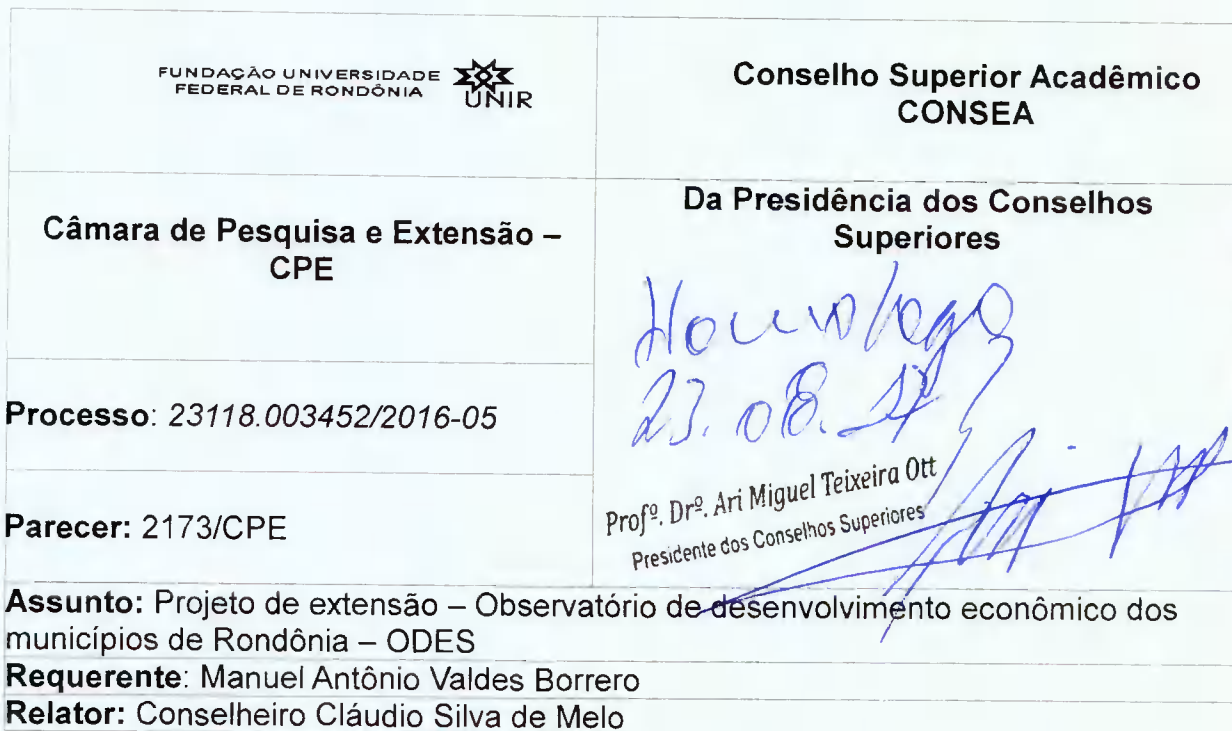 FUNDAÇÃO UNIVERSIDADE
FEDERAL DE RONDÔNIA
UNIR
Conselho Superior Acadêmico
CONSEA
Câmara de Pesquisa e Extensão –
CPE
Da Presidência dos Conselhos
Superiores
Homologo
23.08.17
Profº. Drº. Ari Miguel Teixeira Ott
Presidente dos Conselhos Superiores
Processo: 23118.003452/2016-05
Parecer: 2173/CPE
Assunto: Projeto de extensão – Observatório de desenvolvimento econômico dos
municípios de Rondônia – ODES
Requerente: Manuel Antônio Valdes Borrero
Relator: Conselheiro Cláudio Silva de Melo